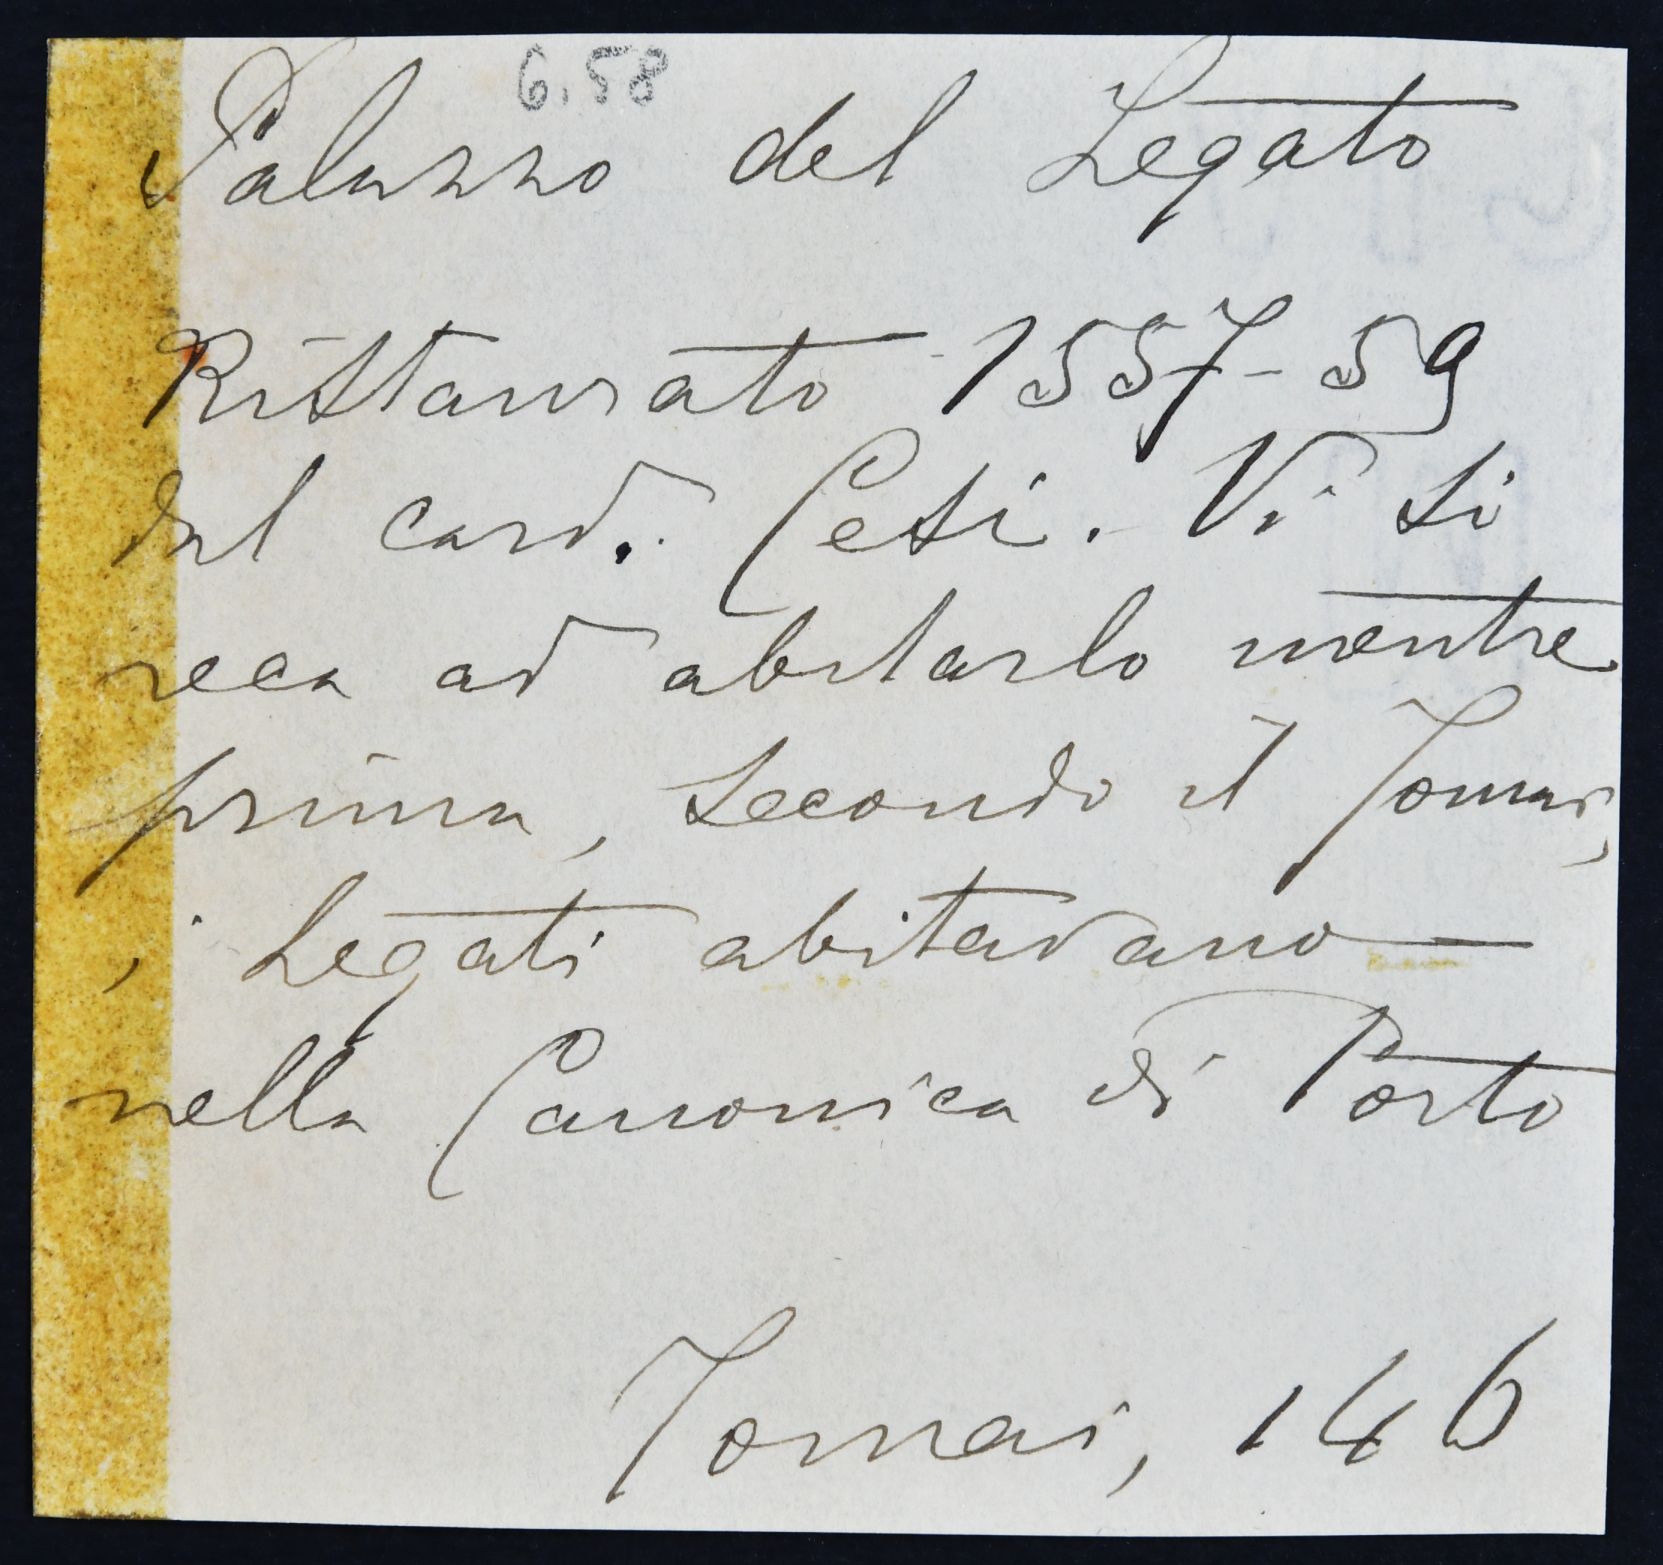 6.58
Palazzo del Legato
Ristaurato 1557-59
dal card. Cesi. Vi si
reca ad abitarlo mentre
prima, secondo il Tomai,
i Legati abitavano
nella Canonica di Porto
Tomai, 146